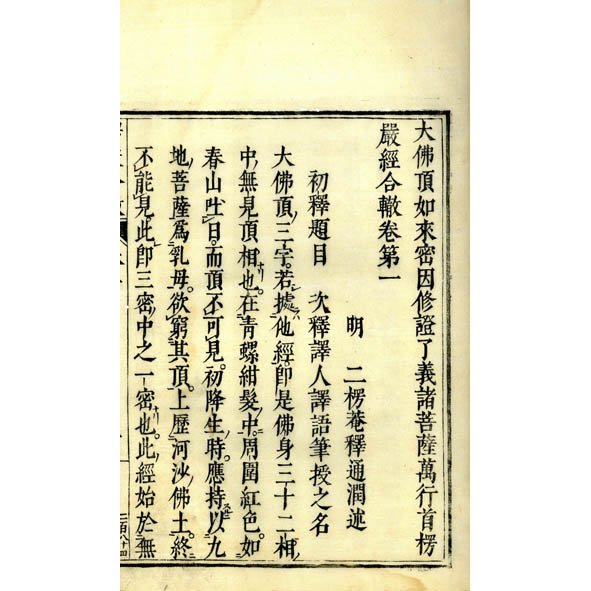 大佛頂如來密因修證了義諸菩薩萬行首楞
嚴經合轍卷第一
明　二楞菴釋通潤述
初釋題目　次釋譯人譯語筆授之名
大佛頂三字。若據他經。即是佛身三十二相
中。無見頂相也。在青螺紺髮中。周圍紅色。如
春山吐日。而頂不可見。初降生時。應持以九
地菩薩爲乳母。欲窮其頂。上歷河沙佛土。終
不能見。此即三密中之一密也。此經始於無